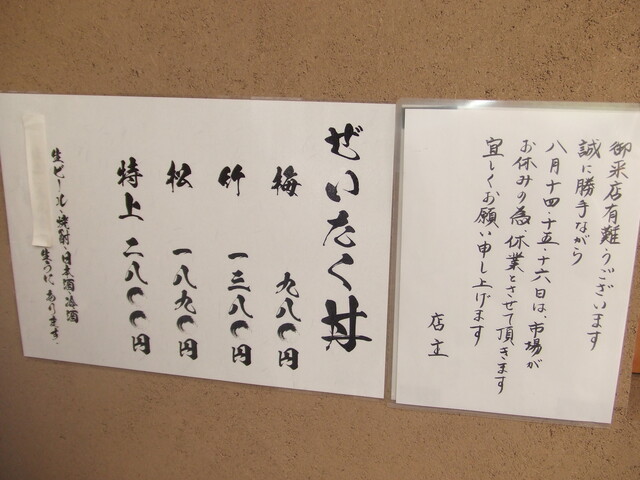 御来店有難うございます
誠に勝手ながら
八月十四・十五・十六日は、市場が
お休みの為、休業とさせて頂きます
宜しくお願い申し上げます
店主
ぜいたく丼
梅 九八〇円
竹 一三八〇円
松 一八九〇円
特上 二八〇〇円
生ビール・焼酎・日本酒
生うに、あります。